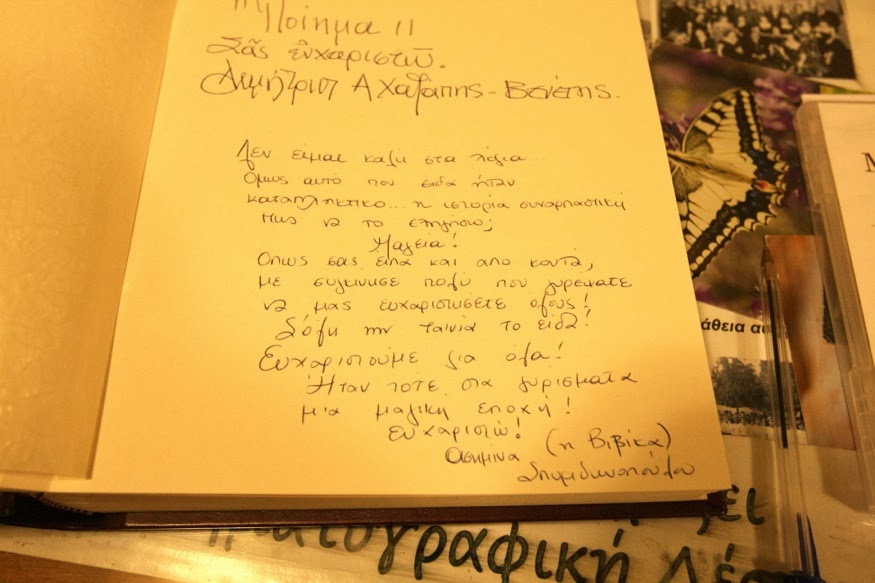 Ποίημα "
Σᾶς εὐχαριστῶ.
Δημήτρης Α Χατζάπης - Βενέτης.
Δεν ειμαι καλή στα λόγια...
Ομως αυτό που ειδα ήταν
καταπληκτικο... η ιστορία συναρπαστική
Πως να το εξηγήσω;
Μαγεία!
Οπως σας ειπα και απο κοντα,
με συγκινησε πολυ που γυρέψατε
να μας ευχαριστησετε ολους!
Σ' όλη την ταινία το είδα!
Ευχαριστούμε για ολα!
Ήταν τότε στα γυρισματα
μια μαγικη εποχή!
ευχαριστώ!
Ασημινα (η Βιβίκα)
άθεια αι
ματογραφική Λέσ